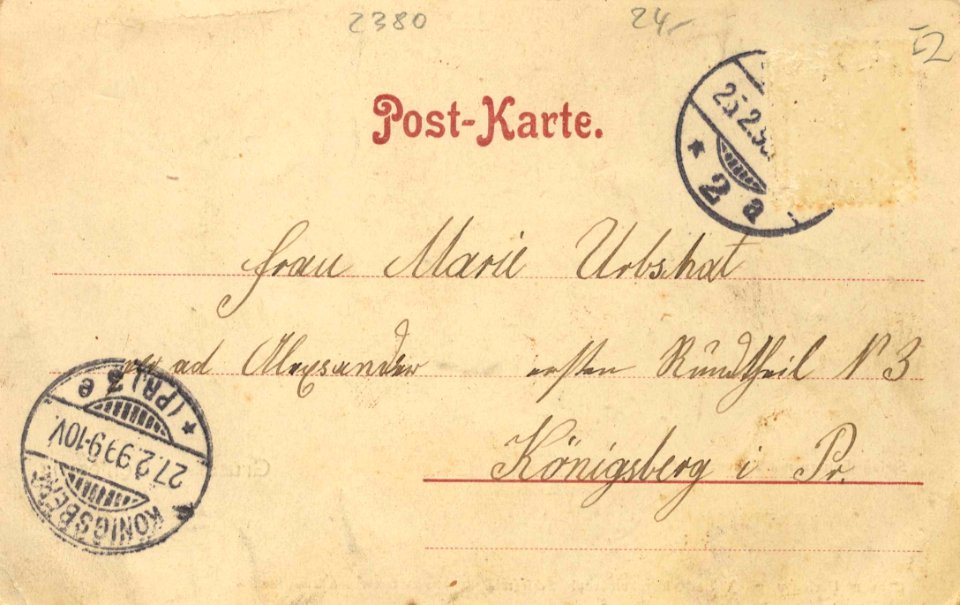 2380 24.-
52
Post-Karte.
25.2.9
* 2 a
Frau Marie Urbschat
ad Alexander ersten Rundtheil N 3
Königsberg i Pr.
KÖNIGSBERG
27.2.99.9-10V.
* (PR.) 3 e